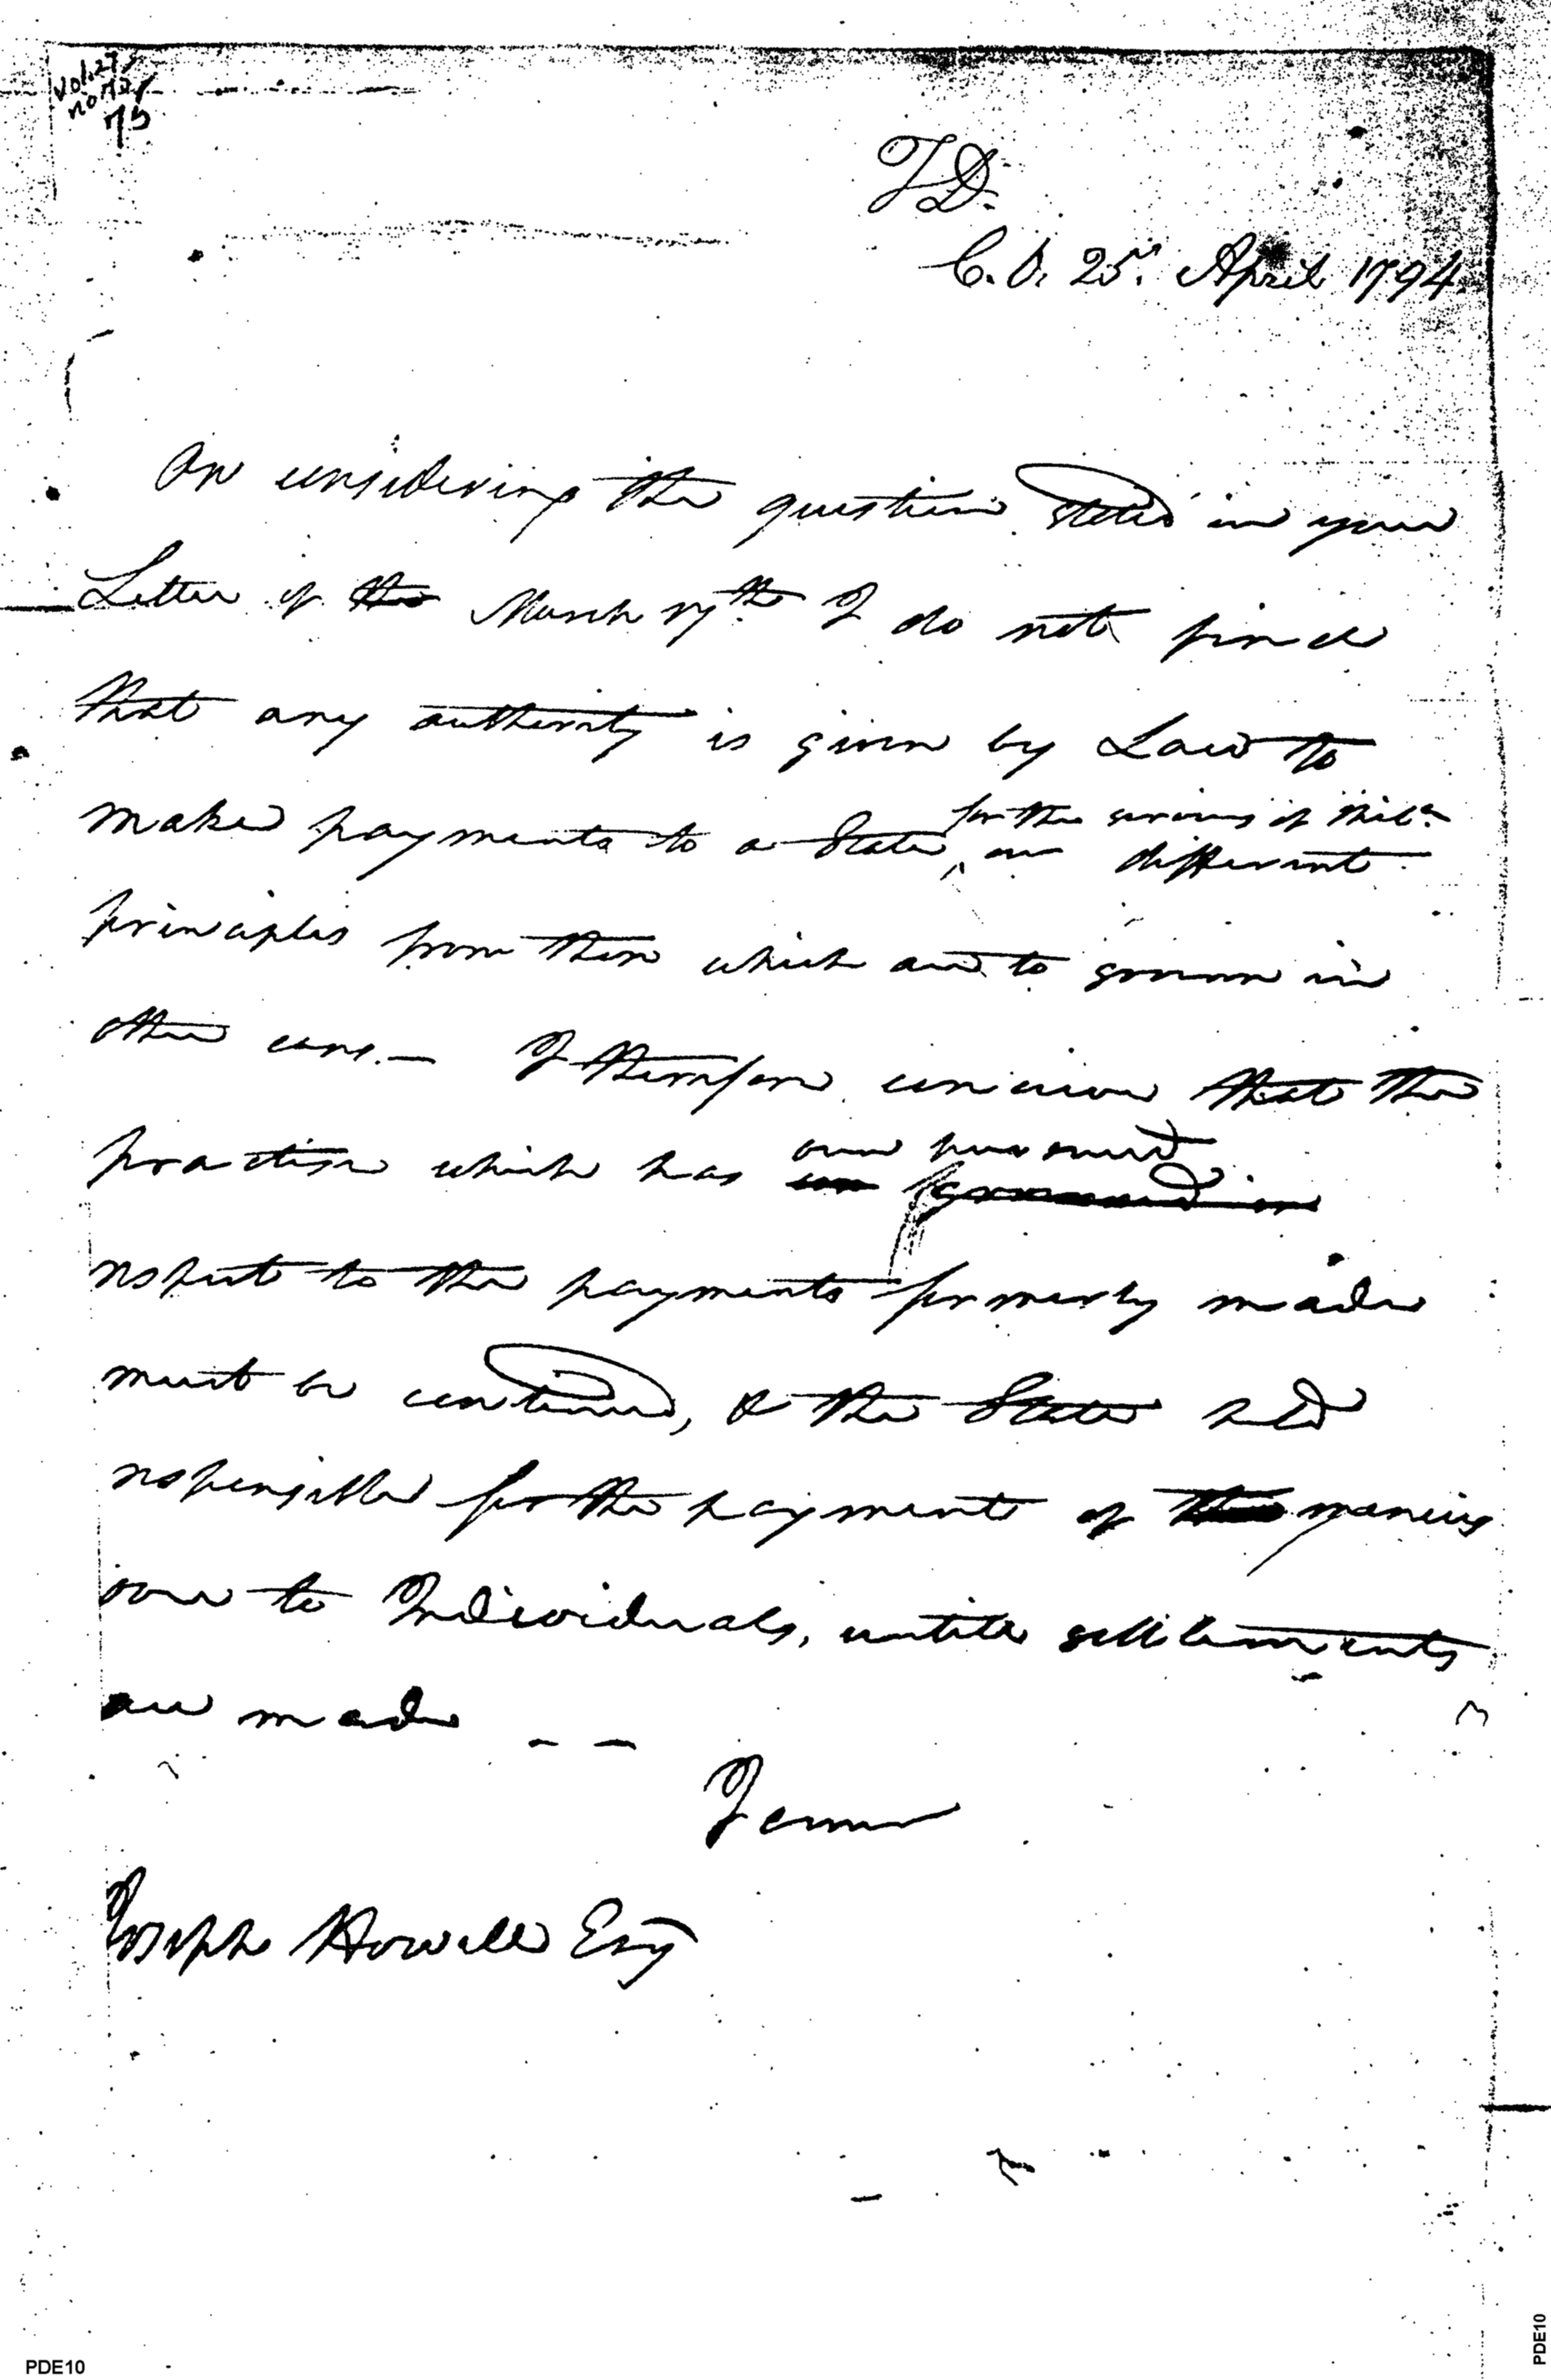 Vol. 27
no 72
75
T D.
C. O. 25. April 1794.
On considering the question stated in your
Letter of the March 17th. I do not find
that any authority is given by Law to
for the services of Mila.
make payments to a State, on different
principles from those which are to govern in
other cases.— I therefore conceive that the
been pursued
practise which has governed in
respect to the payments formerly made
must be continued, & the State held
responsible for the payments of monies
due to Individuals, untill settlements
are made - -
I am
Joseph Howell Esq
PDE10
PDE10